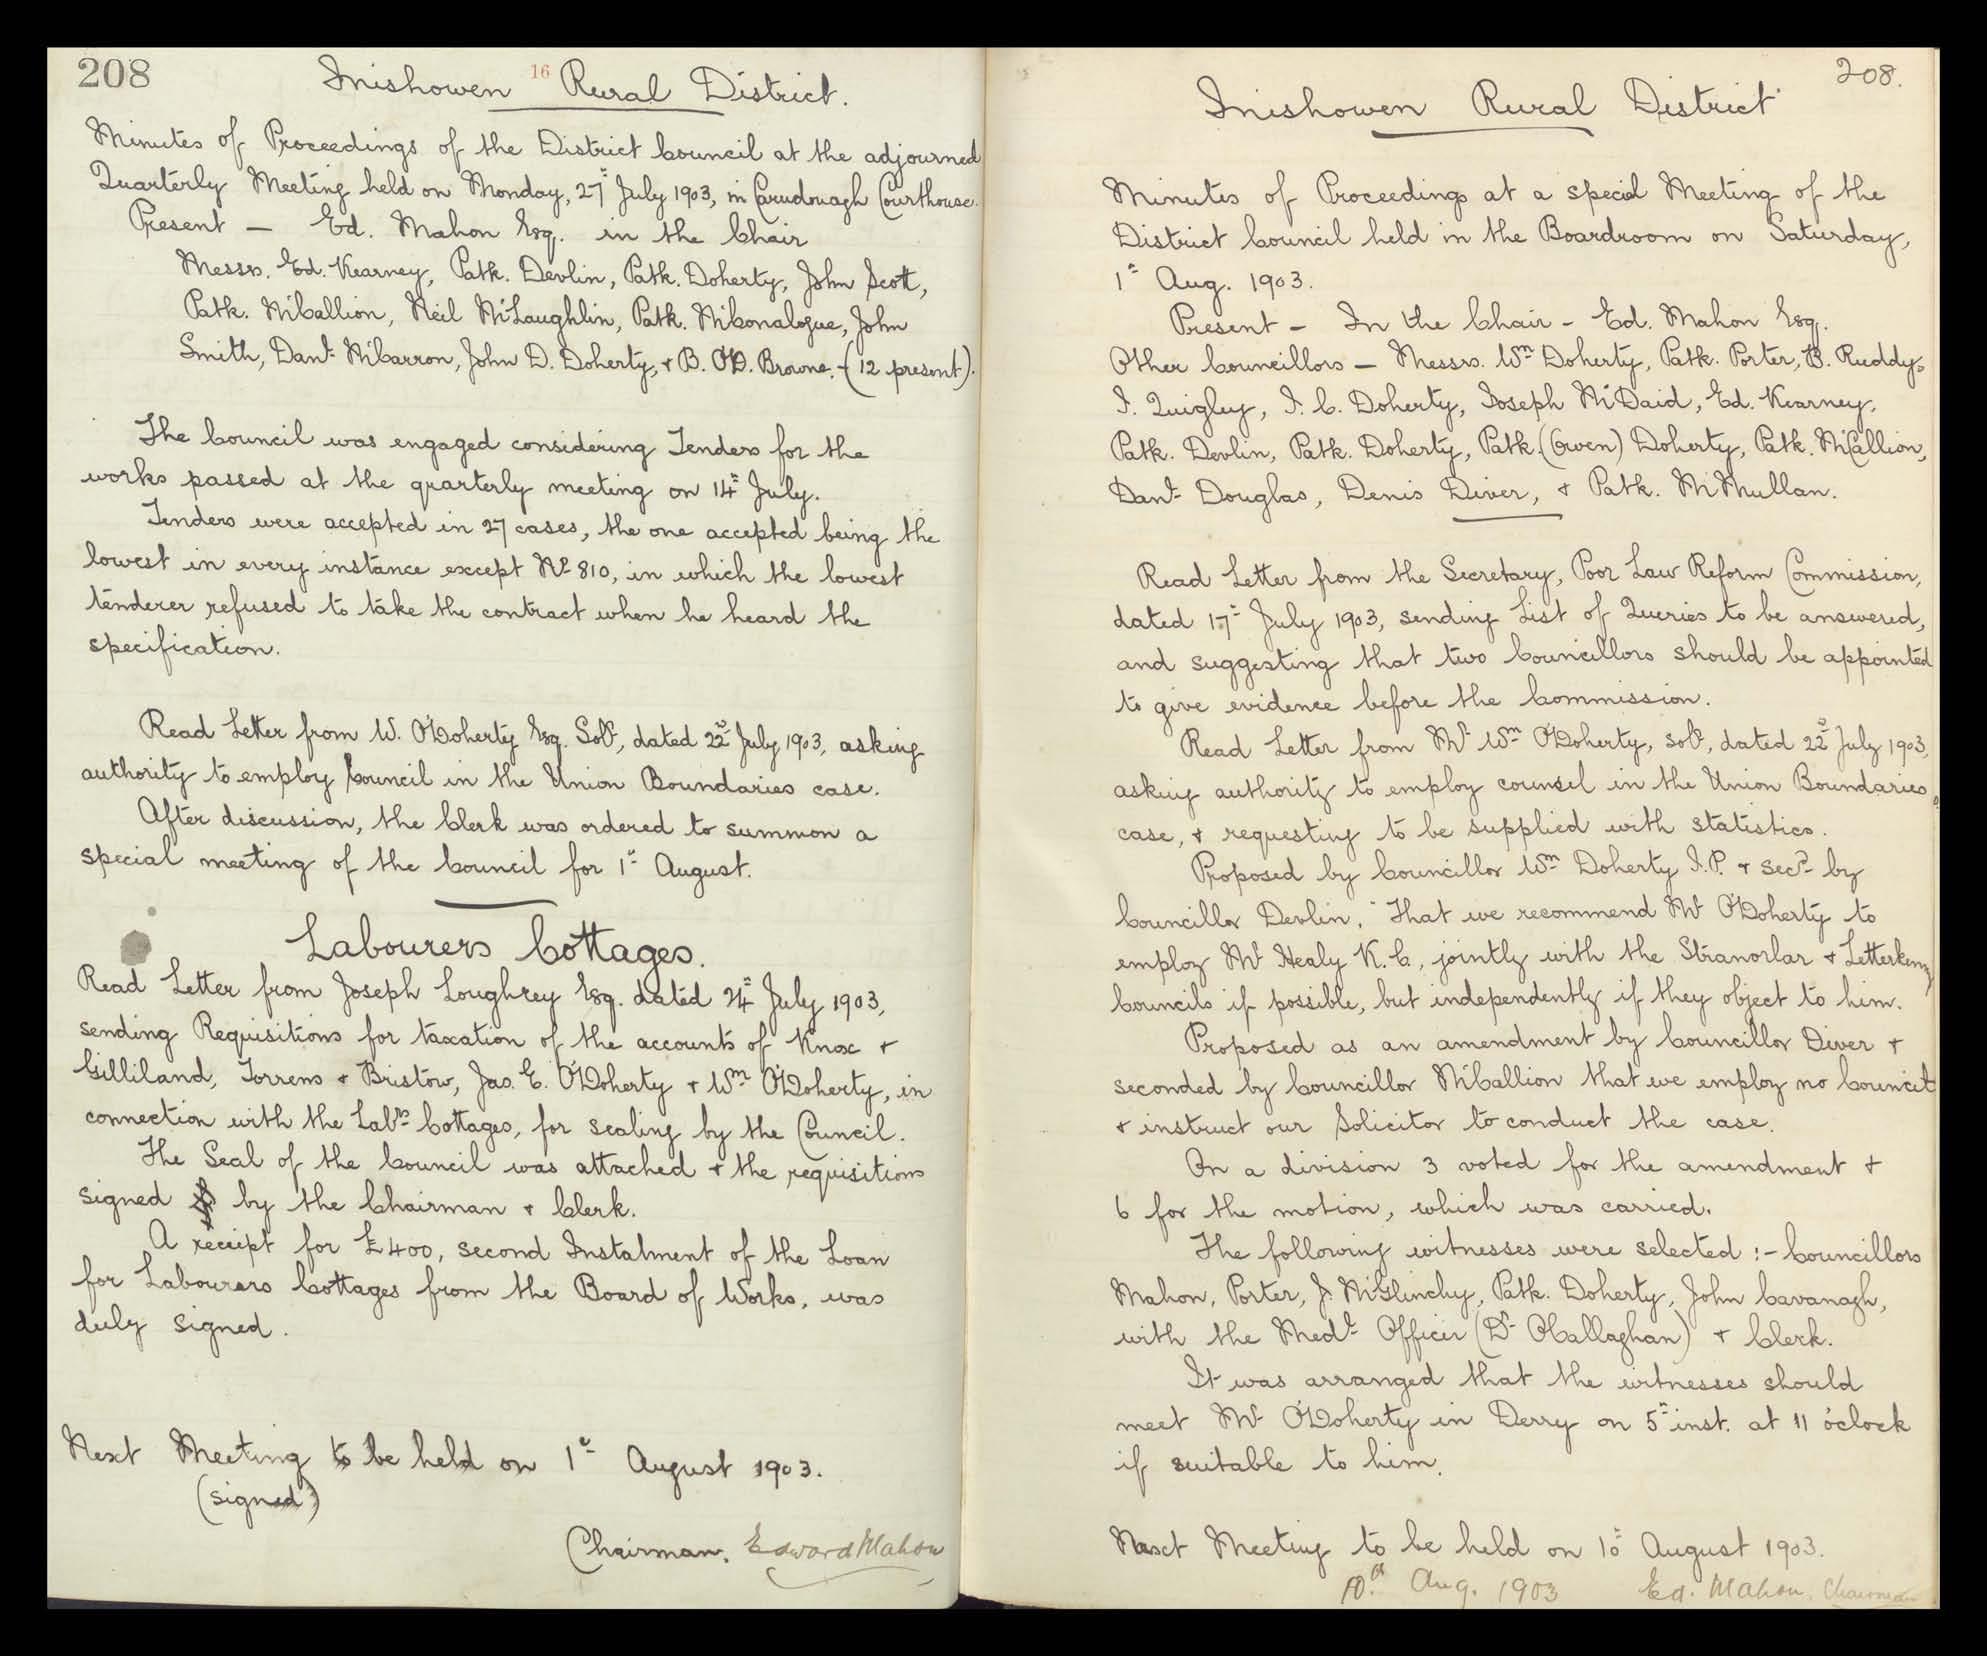 208
16
Inishowen Rural District.
Minutes of Proceedings of the District Council at the adjourned
Quarterly Meeting held on Monday, 27th July 1903, in Carndonagh Courthouse.
Present — Ed. Mahon Esq. in the Chair
Messrs. Ed. Kearney, Patk. Devlin, Patk. Doherty, John Scott,
Patk. McCallion, Neil McLaughlin, Patk. McGonalogue, John
Smith, Danl. McCarron, John D. Doherty, & B. O'D. Browne. - (12 present).
The Council was engaged considering Tenders for the
works passed at the quarterly meeting on 14th July.
Tenders were accepted in 27 cases, the one accepted being the
lowest in every instance except No 810, in which the lowest
tenderer refused to take the contract when he heard the
specification.
Read Letter from W. O'Doherty Esq. Solr, dated 22nd July, 1903, asking
authority to employ Council in the Union Boundaries case.
After discussion, the Clerk was ordered to summon a
special meeting of the Council for 1st August.
Labourers Cottages.
Read Letter from Joseph Loughrey Esq. dated 24th July 1903,
sending Requisitions for taxation of the accounts of Knox &
Gilliland, Torrens & Bristow, Jas. E. O'Doherty & Wm O'Doherty, in
connection with the Labrs Cottages, for sealing by the Council.
The Seal of the Council was attached & the requisitions
signed by the Chairman & Clerk.
A receipt for £400, second Instalment of the Loan
for Labourers Cottages from the Board of Works, was
duly signed.
Next Meeting to be held on 1st August 1903.
(signed)
Chairman. Edward Mahon
208.
Inishowen Rural District
Minutes of Proceedings at a special Meeting of the
District Council held in the Boardroom on Saturday,
1st Aug. 1903.
Present — In the Chair - Ed. Mahon Esq.
Other Councillors — Messrs. Wm Doherty, Patk. Porter, B. Ruddy,
J. Quigley, J. C. Doherty, Joseph McDaid, Ed. Kearney,
Patk. Devlin, Patk. Doherty, Patk. (Owen) Doherty, Patk. McCallion,
Danl Douglas, Denis Diver, & Patk. McMullan.
Read Letter from the Secretary, Poor Law Reform Commission,
dated 17th July 1903, sending List of Queries to be answered,
and suggesting that two Councillors should be appointed
to give evidence before the Commission.
Read Letter from Mr Wm O'Doherty, solr, dated 22nd July 1903,
asking authority to employ counsel in the Union Boundaries
case, & requesting to be supplied with statistics.
Proposed by Councillor Wm Doherty J.P. & secd by
Councillor Devlin, "That we recommend Mr O'Doherty to
employ Mr Healy K.C., jointly with the Stranorlar & Letterkenny
Councils if possible, but independently if they object to him.
Proposed as an amendment by Councillor Diver &
seconded by Councillor McCallion that we employ no Council
& instruct our Solicitor to conduct the case.
On a division 3 voted for the amendment &
6 for the motion, which was carried.
The following witnesses were selected :- Councillors
Mahon, Porter, J. McGlinchy, Patk. Doherty, John Cavanagh,
with the Medl Officer (Dr O'Callaghan) & Clerk.
It was arranged that the witnesses should
meet Mr O'Doherty in Derry on 5th inst. at 11 o'clock
if suitable to him.
Next Meeting to be held on 10th August 1903.
10th Aug. 1903 Ed. Mahon, Chairman